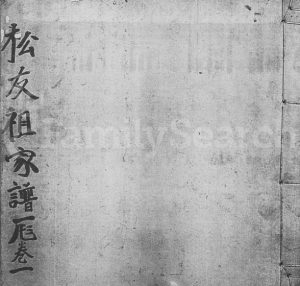 松友祖家譜 卷一
FamilySearch